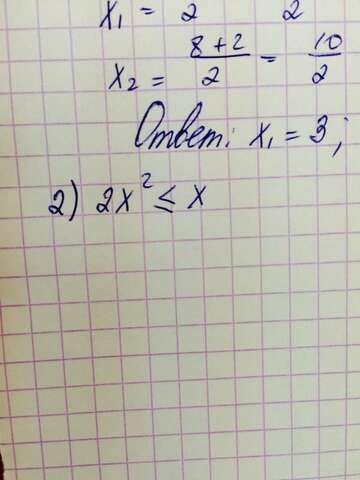 x₁ = 2 2
x₂ = (8+2)/2 = 10/2
Ответ: x₁ = 3;
2) 2x² ≤ x